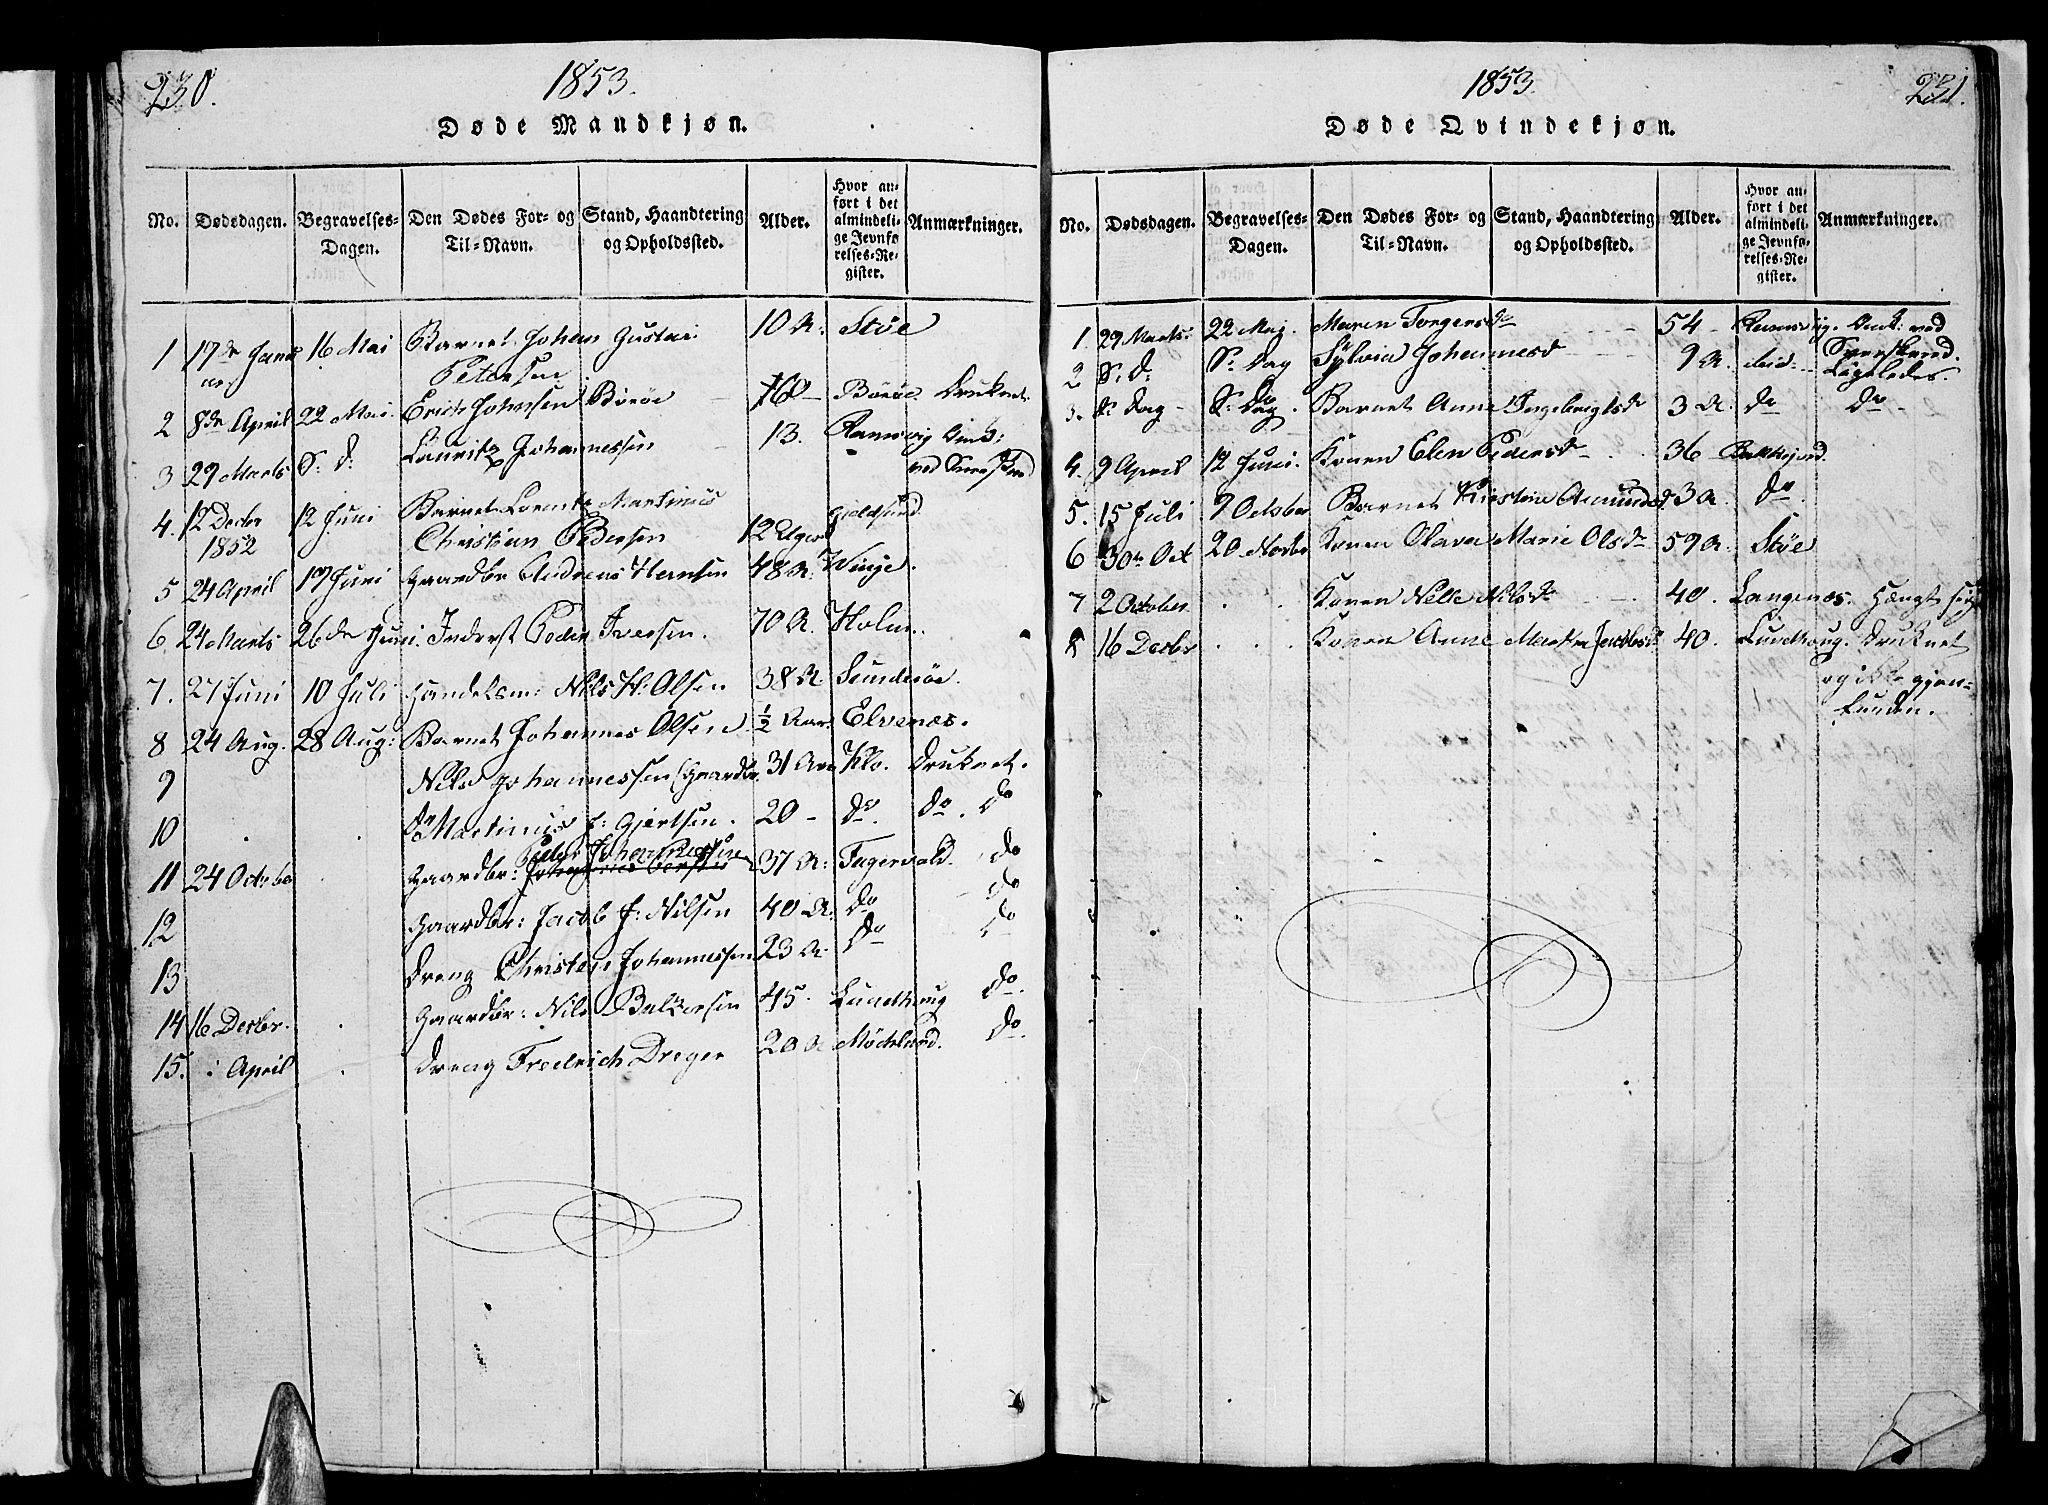 230.
1853.
Døde Mandkjøn.
No. Dødsdagen. Begravelses-Dagen. Den Dødes For- og Til-Navn. Stand, Haandtering og Opholdssted. Alder. Hvor anført i det almindelige Jevnførelses-Register. Anmærkninger.
1 17de Januar 16 Mai Barnet Johan Gustav 10 A: Støe
Petersen
2 8de April 22 Mai Erich Johnsen Børøe 60 Børøe Druknet
3 29 Marts S: D: Lauritz Johannessen 13. Ramsvig
ved
4. 12 Decbr 12 Juni Barnet Lorentz Martinus
1852 Christian Pedersen 12 Uger
5 24 April 17 Juni Gaardbr Andreas 48 A: Vinje.
6. 24 Marts 26de Juni. Inderst Peder Iversen. 70 A. Holm.
7. 27 Juni 10 Juli Handelsm: Nils H: Olsen 38 A. Sunderøe.
8 24 Aug. 28 Aug: Barnet Johannes Olsen ½ Aar. Elvenæs.
9 Nils Johannessen Gaardbr. 31 Aar Klo. Druknet.
10 Do Martinus J: Gjertsen. 20 - Do. Do. Do
Peder Johannessen
11 24 Octobr Gaardbr: 37 A: Fagervold. Do
12 Gaardbr: Jacob J: Nilsen 40 A. Do Do
13 Dreng Christen Johannessen 23 A. Do Do
14 16 Decbr. Gaardbr: Nils Baltzersen 45. Lundhoug Do.
15. i April Dreng Fredrich Dreyer 20 A Møckland. Do.
1853
231.
Døde Qvindekjøn.
No. Dødsdagen. Begravelses-Dagen. Den Dødes For- og Til-Navn. Stand, Haandtering og Opholdssted. Alder. Hvor anført i det almindelige Jevnførelses-Register. Anmærkninger.
1 29 Marts. 22 Maj. Maren Torgersdr 54 - Ramsvig. Omk: ved
2 S: D: S: Dag Sylvia Johannesd 9 A. ibid: Ligeledes.
3. S: Dag - S: Dag. Barnet Anne Ingebrigtsdr 3 A. Do Do
4. 9 April 12 Juni. Konen Elen Pedersdr 36 Bakkejord.
5. 15 Juli 9 Octobr Barnet Kirstine Amundsd. 3 A Do
6 30te Oct 20 Novbr Konen Olava Marie Olsdr 59 A. Støe
7 2 October Konen Nille Nilsdr 40. Langenæs. Hængt sig
8 16 Decbr Konen Anne Martha Jacobsd. 40. Lundhoug. Druknet
og ikke gjen-
funden.